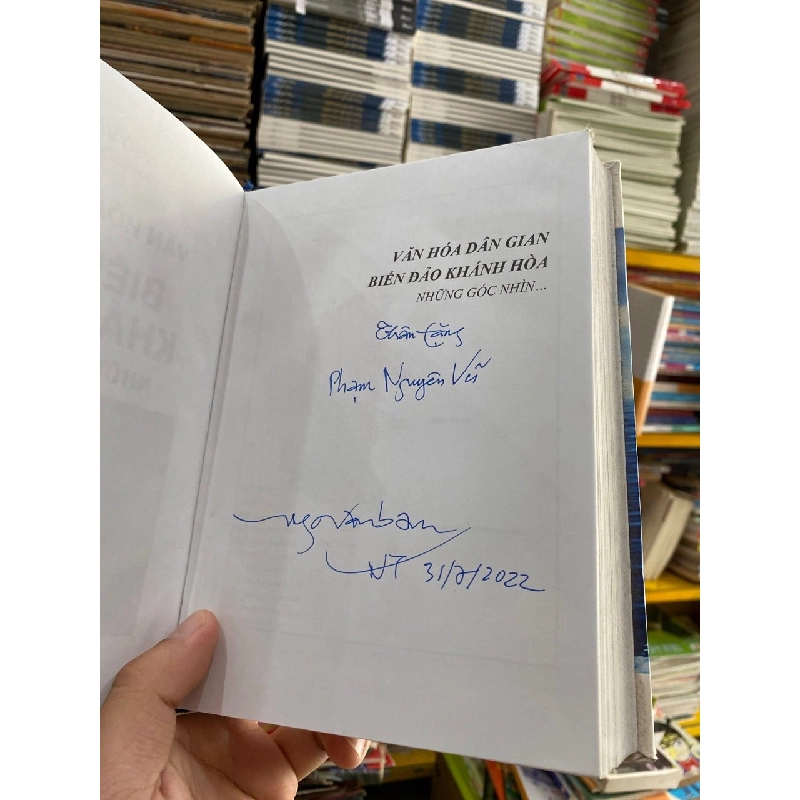 VĂN HÓA DÂN GIAN
BIỂN ĐẢO KHÁNH HÒA
NHỮNG GÓC NHÌN...
Thân tặng
Phạm Nguyên Vũ
Ngovanban
NT 31/7/2022